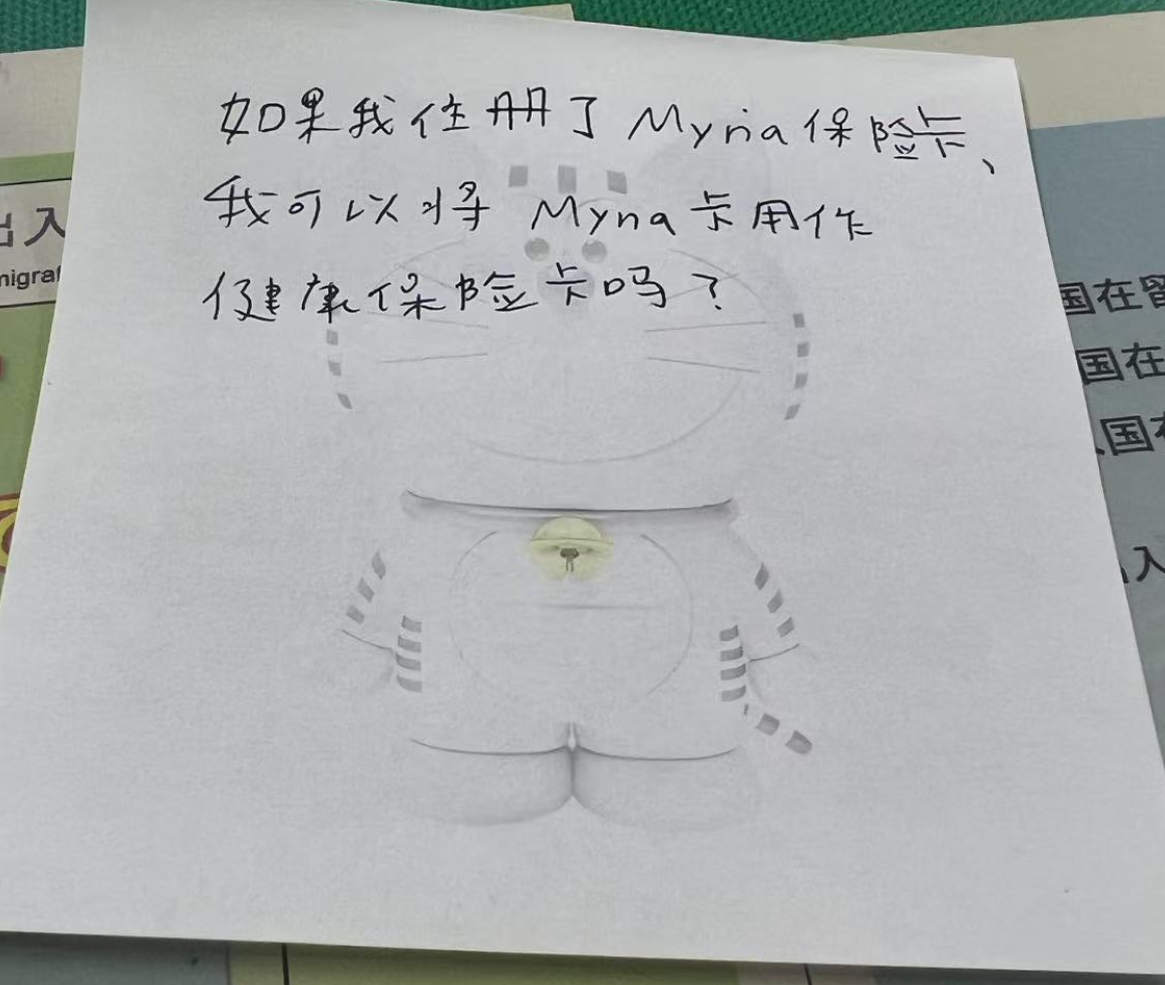 如果我住册了 Myna保险卡、
我可以将 Myna卡用作
健康保险卡吗？
出入
migra
国在留
国在
国在
入